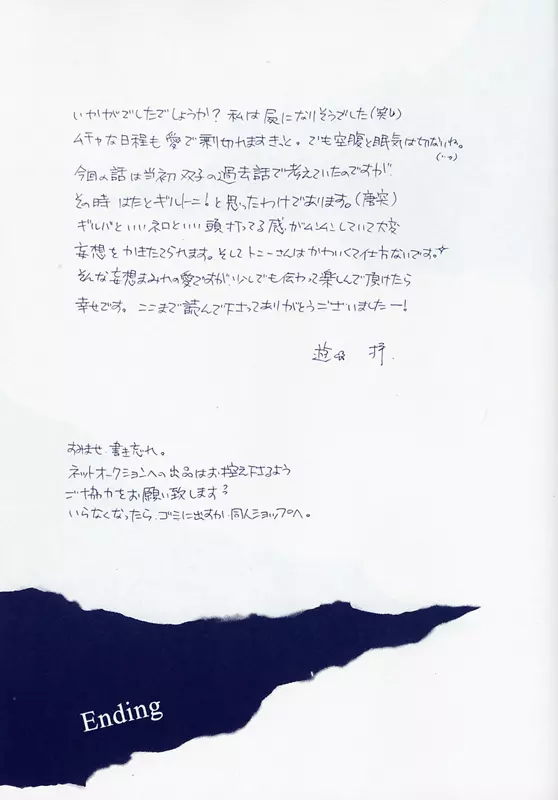 いかがでしたでしょうか? 私は屍になりそうでした(笑)
ムチャな日程も愛で乗り切れますきっと。でも空腹と眠気は切ないね。
今回の話は当初双子の過去話で考えていたのですが
その時はたとギルトニ!と思ったわけであります。(唐突)
ギルバといいネロといい頭打ってる感がムンムンしていて大変
妄想をかきたてられます。そしてトニーさんはかわいくて仕方ないです。
そんな妄想まみれの愛ですが、少しでも伝わって楽しんで頂けたら
幸せです。ここまで読んで下さってありがとうございましたー!
すみませ、書き忘れ。
ネットオークションへの出品はお控え下さるよう
ご協力をお願い致します?
いらなくなったら、ゴミに出すか、同人ショップへ。
Ending